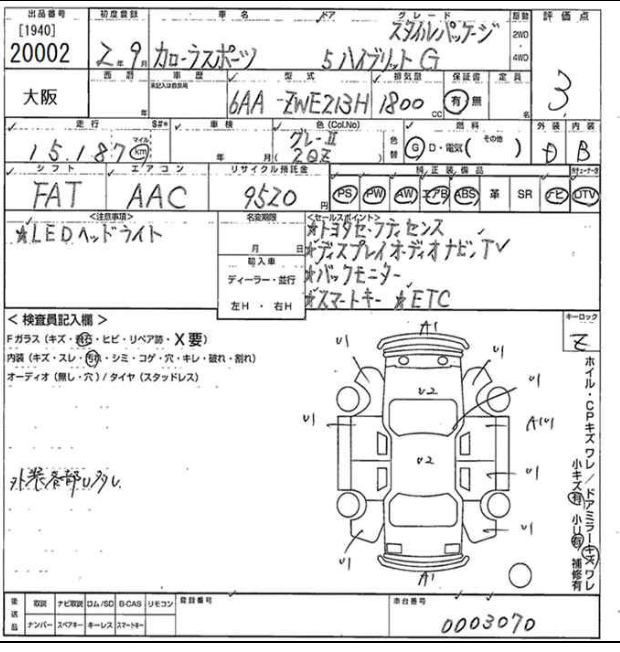 出品番号 初度登録 車名 ドア グレード 駆動 評価点
[1940]
20002 2年9月 カローラスポーツ 5 ハイブリット G スタイルパッケージ 2WD 4WD 3
大阪 西暦 年 車歴 型式 排気量 保証書 定員
未記入は自家用 6AA-ZWE213H 1800cc 有 無 名
走行 マイル km S#* 車検 年 月 色(Col.No) 色替 燃料 外装 内装
15,187 グレーII (2QZ) G D・電気( その他 ) D B
シフト エアコン リサイクル預託金 純正装備品
FAT AAC 9520円 PS PW AW エアB ABS 革 SR ナビ DTV
<注意事項> 名変期限 <セールスポイント>
☆LEDヘッドライト 月 日 ☆トヨタセーフティセンス
輸入車 ☆ディスプレイオーディオナビ、TV
ディーラー・並行 ☆バックモニター
左H ・ 右H ☆スマートキー ☆ETC
<検査員記入欄> キーロック
Fガラス(キズ・飛石・ヒビ・リペア跡・X要) Z
内装(キズ・スレ・汚れ・シミ・コゲ・穴・キレ・破れ・割れ)
オーディオ(無し・穴)/タイヤ(スタッドレス)
A1
U1 U1
U2 U1
U1 A1U1
U2
U1
U1 U1
A1
外装各部Uタレ
ホイル・CPキズワレ/ドアミラーキズワレ
小キズ有 小U有 補修有
後送品 取説 ナビ取説 ロム/SD B-CAS リモコン 登録番号 車台番号
ナンバー スペアキー キーレス スマートキー 0003070